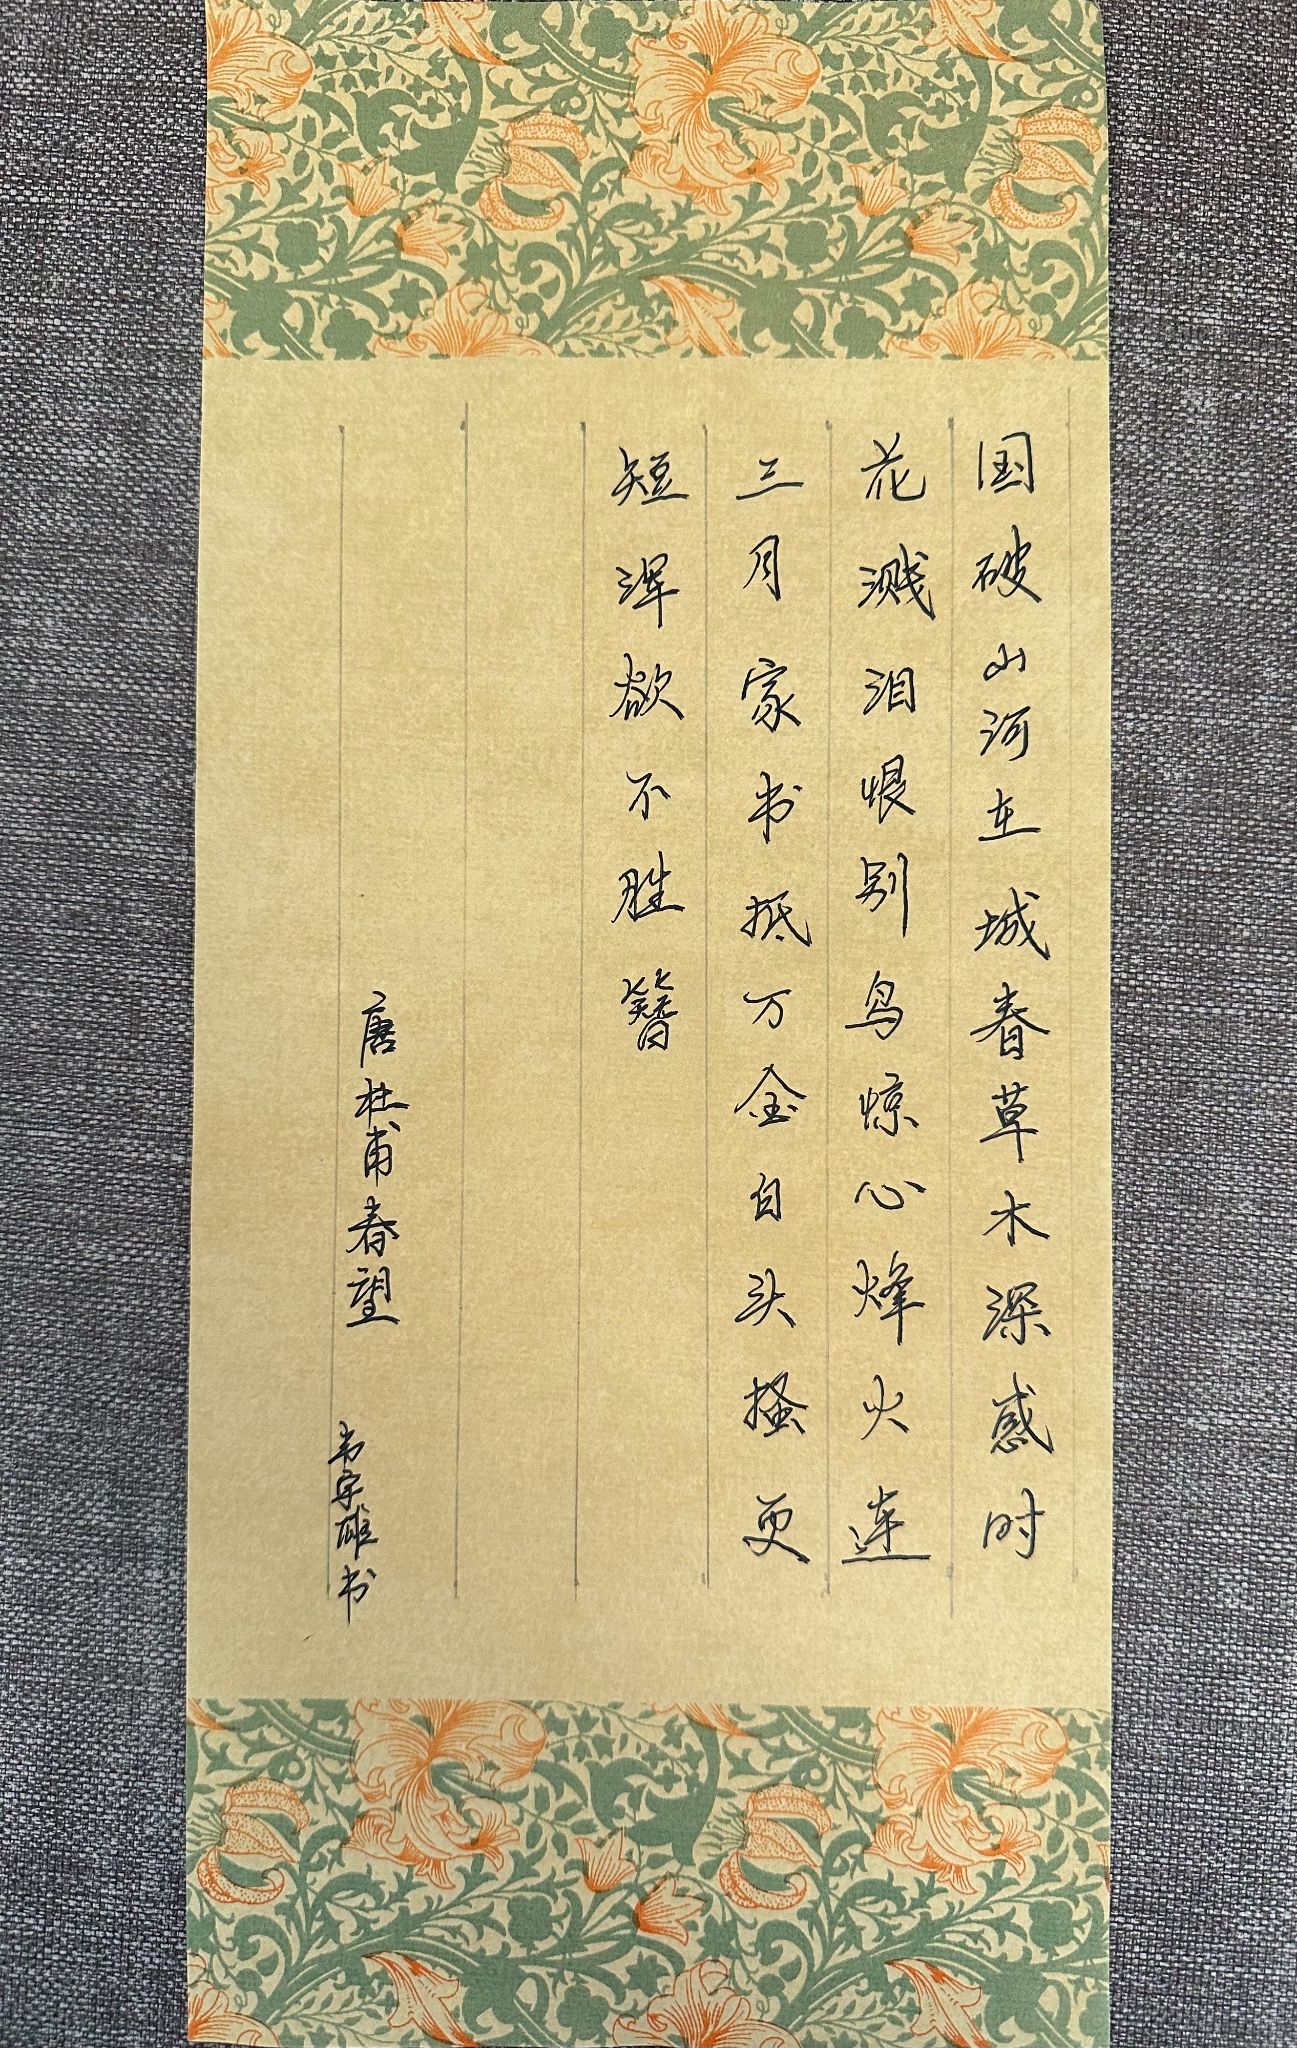 国破山河在城春草木深感时
花溅泪恨别鸟惊心烽火连
三月家书抵万金白头搔更
短浑欲不胜簪
唐杜甫春望
韦宇雄书